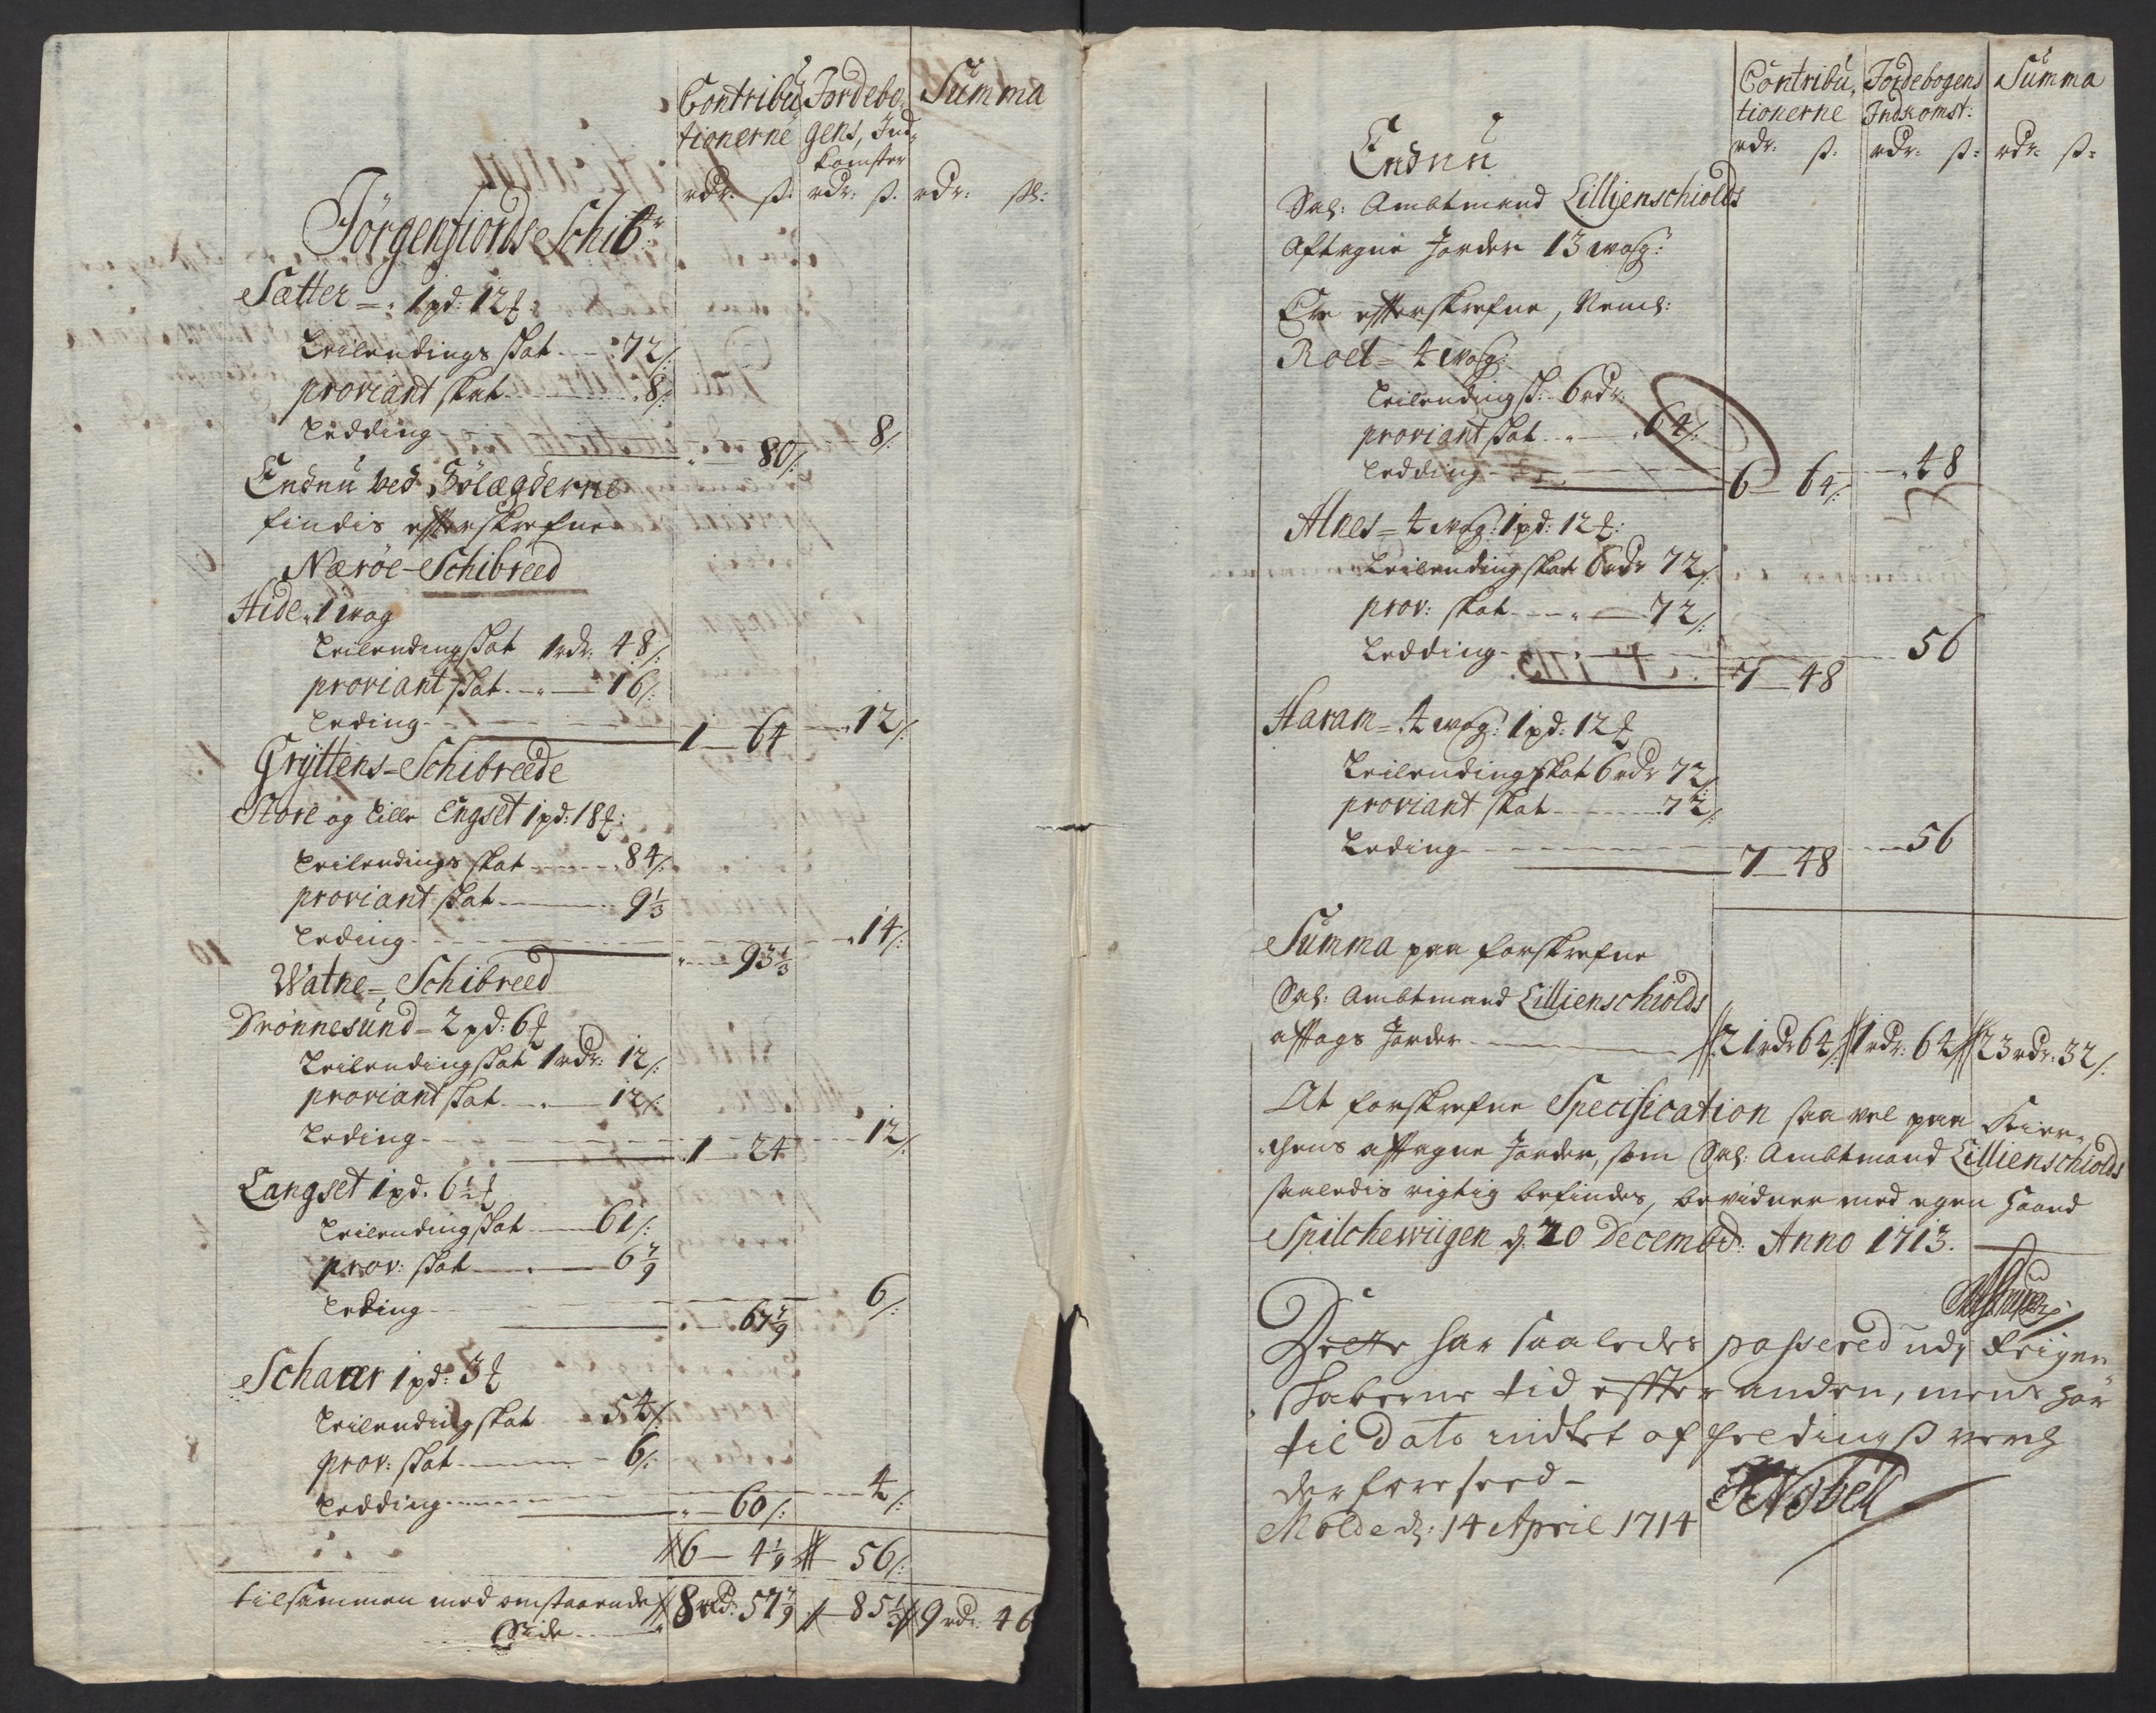 Contribu Jordebo, Summa
tionerne gens, Ind,
komster
rdr: ß: rdr: ß. rdr: ßl:
Jörgenfiords Schibr
Sætter = 1 pd: 12 ℔:
Leilendings skat 72/:
proviant skat 8/:
Ledding 80/: 8/:
Endnu ved Sölægderne
findis efterskrefne
Nærøe-Schibreed
Hide 1 wog
Leilendingskat 1 rdr: 48/:
proviant skat 16/:
Leding 1 64 12/:
Gryttens-Schibreede
Store og Lille Engset 1 pd: 18 ℔:
Leilendings skat 84/:
proviant skat 9 1/3
Leding 93 1/3 14/:
Watne-Schibreed
Drønnesund = 2 pd: 6 ℔
Leilendingskat 1 rdr: 12/:
proviant skat 12/:
Leding 1 24 12/:
Langset 1 pd. 6 1/2 ℔
Leilendingskat 61/:
prov: skat 6 7/9
Leding 67 7/9 6/:
Schaaer 1 pd: 3 ℔
Leilendingskat 54/:
prov: skat 6/:
Ledding 60/: 4/:
6 — 4 1/9 56/:
tilsammen med omstaaende 8 rd: 57 7/9 85 1/3 9 rdr: 46
Side
Contribu, Jordebogens Summa
tionerne Indkomst:
rdr: ß: rdr: ß: rdr: ß:
Endnu
Sal: Ambtmand Lillienschiolds
Aftagne Jorder 13 wog:
Ere efterskrefne, Neml:
Roel = 4 wog:
Leilendingsk: 6 rdr:
proviant skat 64/:
Ledding 6 64/: 48
Alnes = 4 wog: 1 pd: 12 ℔:
Leilendingskat 6 rdr 72/:
prov: skat 72/:
Ledding 7 48 56
Haram = 4 wog: 1 pd: 12 ℔
Leilendingskat 6 rdr 72/:
proviant skat 72/:
Leding 7 48 56
Summa paa forskrefne
Sal: Ambtmand Lillienschiolds
aftags Jorder 21 rdr 64/: 1 rdr: 64 23 rdr: 32/:
At forskrefne Specification saa vel paa Kier,
chens aftagne Jorder, som Sal: Ambtmand Lillienschiolds
saaledis rigtig befindes, bevidner med egen Haand
Spilchewiigen d. 20 Decembr: Anno 1713.
Dette har saaledes passered udj Reignn
skaberne tid effter anden, mens har
til dato indtet af
der fore
Molde d: 14 April 1714 Nobell